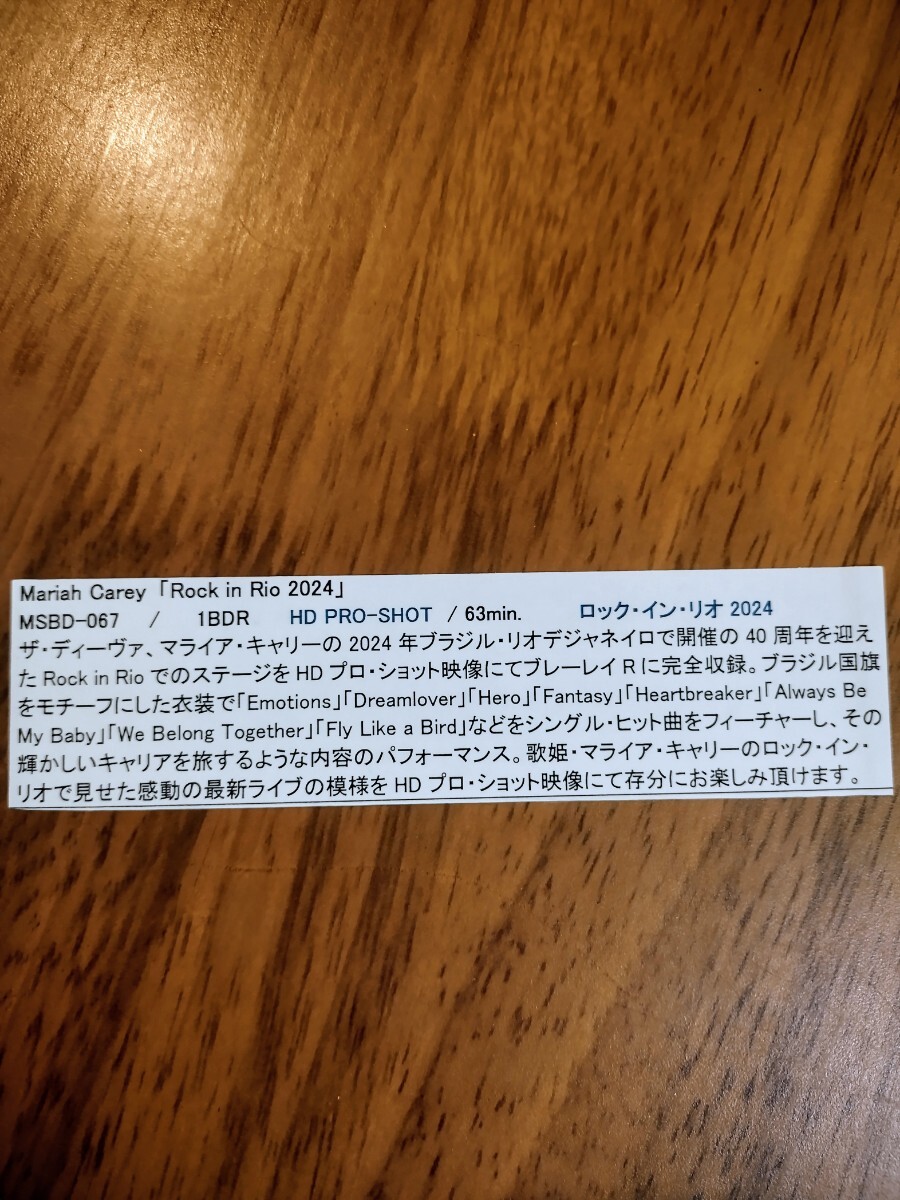 Mariah Carey 「Rock in Rio 2024」
MSBD-067 / 1BDR HD PRO-SHOT / 63min. ロック・イン・リオ 2024
ザ・ディーヴァ、マライア・キャリーの 2024 年ブラジル・リオデジャネイロで開催の 40 周年を迎え
た Rock in Rio でのステージを HD プロ・ショット映像にてブレーレイ R に完全収録。ブラジル国旗
をモチーフにした衣装で「Emotions」「Dreamlover」「Hero」「Fantasy」「Heartbreaker」「Always Be
My Baby」「We Belong Together」「Fly Like a Bird」などをシングル・ヒット曲をフィーチャーし、その
輝かしいキャリアを旅するような内容のパフォーマンス。歌姫・マライア・キャリーのロック・イン・
リオで見せた感動の最新ライブの模様を HD プロ・ショット映像にて存分にお楽しみ頂けます。